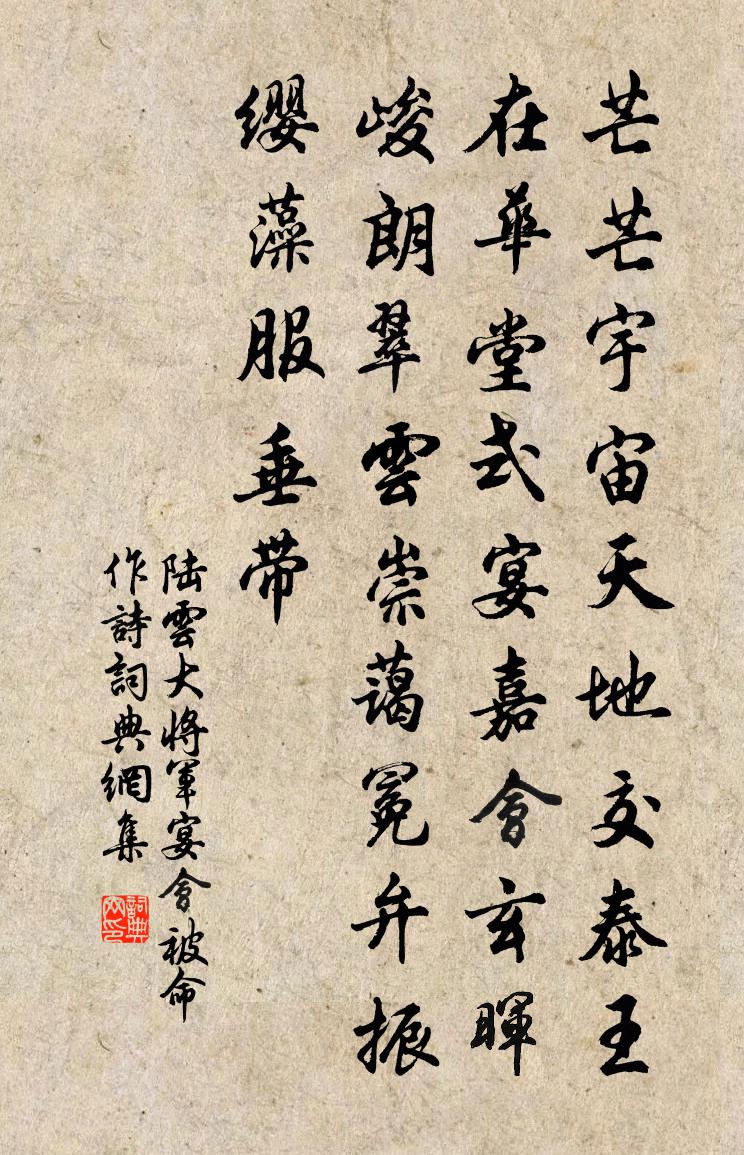 芒芒宇宙天地交泰王
在華堂式宴嘉會玄暉
峻朗翠雲崇藹冕弁振
纓藻服垂带
陆雲大将軍宴會被命
作詩詞典網集
詞典网印